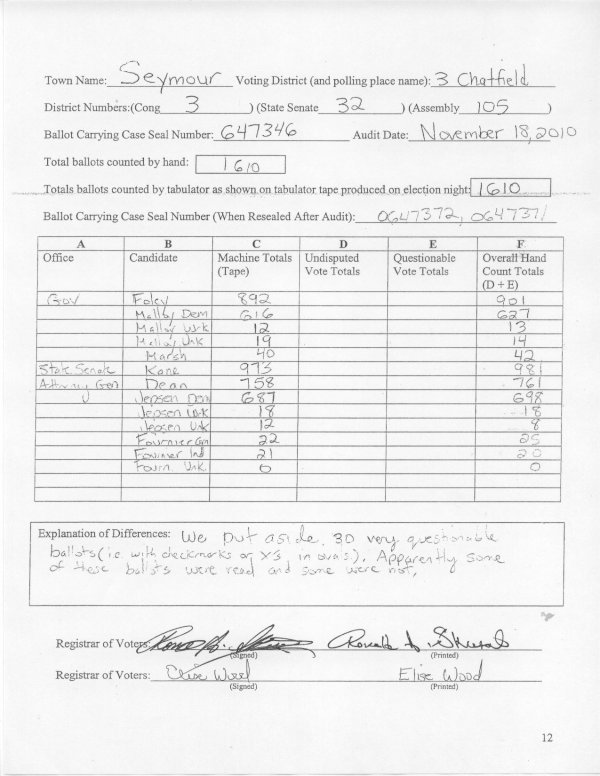 Town Name: Seymour Voting District (and polling place name): 3 Chatfield
District Numbers:(Cong 3 ) (State Senate 32 ) (Assembly 105 )
Ballot Carrying Case Seal Number: 647346 Audit Date: November 18, 2010
Total ballots counted by hand: 1610
Totals ballots counted by tabulator as shown on tabulator tape produced on election night: 1610
Ballot Carrying Case Seal Number (When Resealed After Audit): 0647372, 0647371
A B C D E F
Office Candidate Machine Totals (Tape) Undisputed Vote Totals Questionable Vote Totals Overall Hand Count Totals (D + E)
Gov Foley 892 901
Malloy Dem 616 627
Malloy Wrk 12 13
Malloy Unk 19 14
Marsh 40 42
State Senate Kane 973 981
Attorney Gen Dean 758 761
Jepsen Dem 687 698
Jepsen Wrk 18 18
Jepsen Unk 12 8
Fournier Grn 22 25
Fournier Ind 21 20
Fourn. Unk. 0 0
Explanation of Differences: We put aside 30 very questionable
ballots (i.e. with checkmarks or XS in ovals). Apparently some
of these ballots were read and some were not.
Registrar of Voters:
(Signed) (Printed)
Registrar of Voters: Elise Wood Elise Wood
(Signed) (Printed)
12